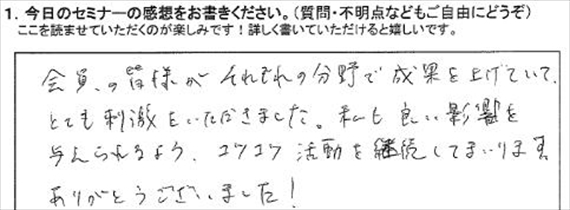 1. 今日のセミナーの感想をお書きください。(質問・不明点などもご自由にどうぞ)
ここを読ませていただくのが楽しみです！詳しく書いていただけると嬉しいです。
会員の皆様がそれぞれの分野で成果を上げていて、
とても刺激をいただきました。私も良い影響を
与えられるよう、コツコツ活動を継続してまいります
ありがとうございました！